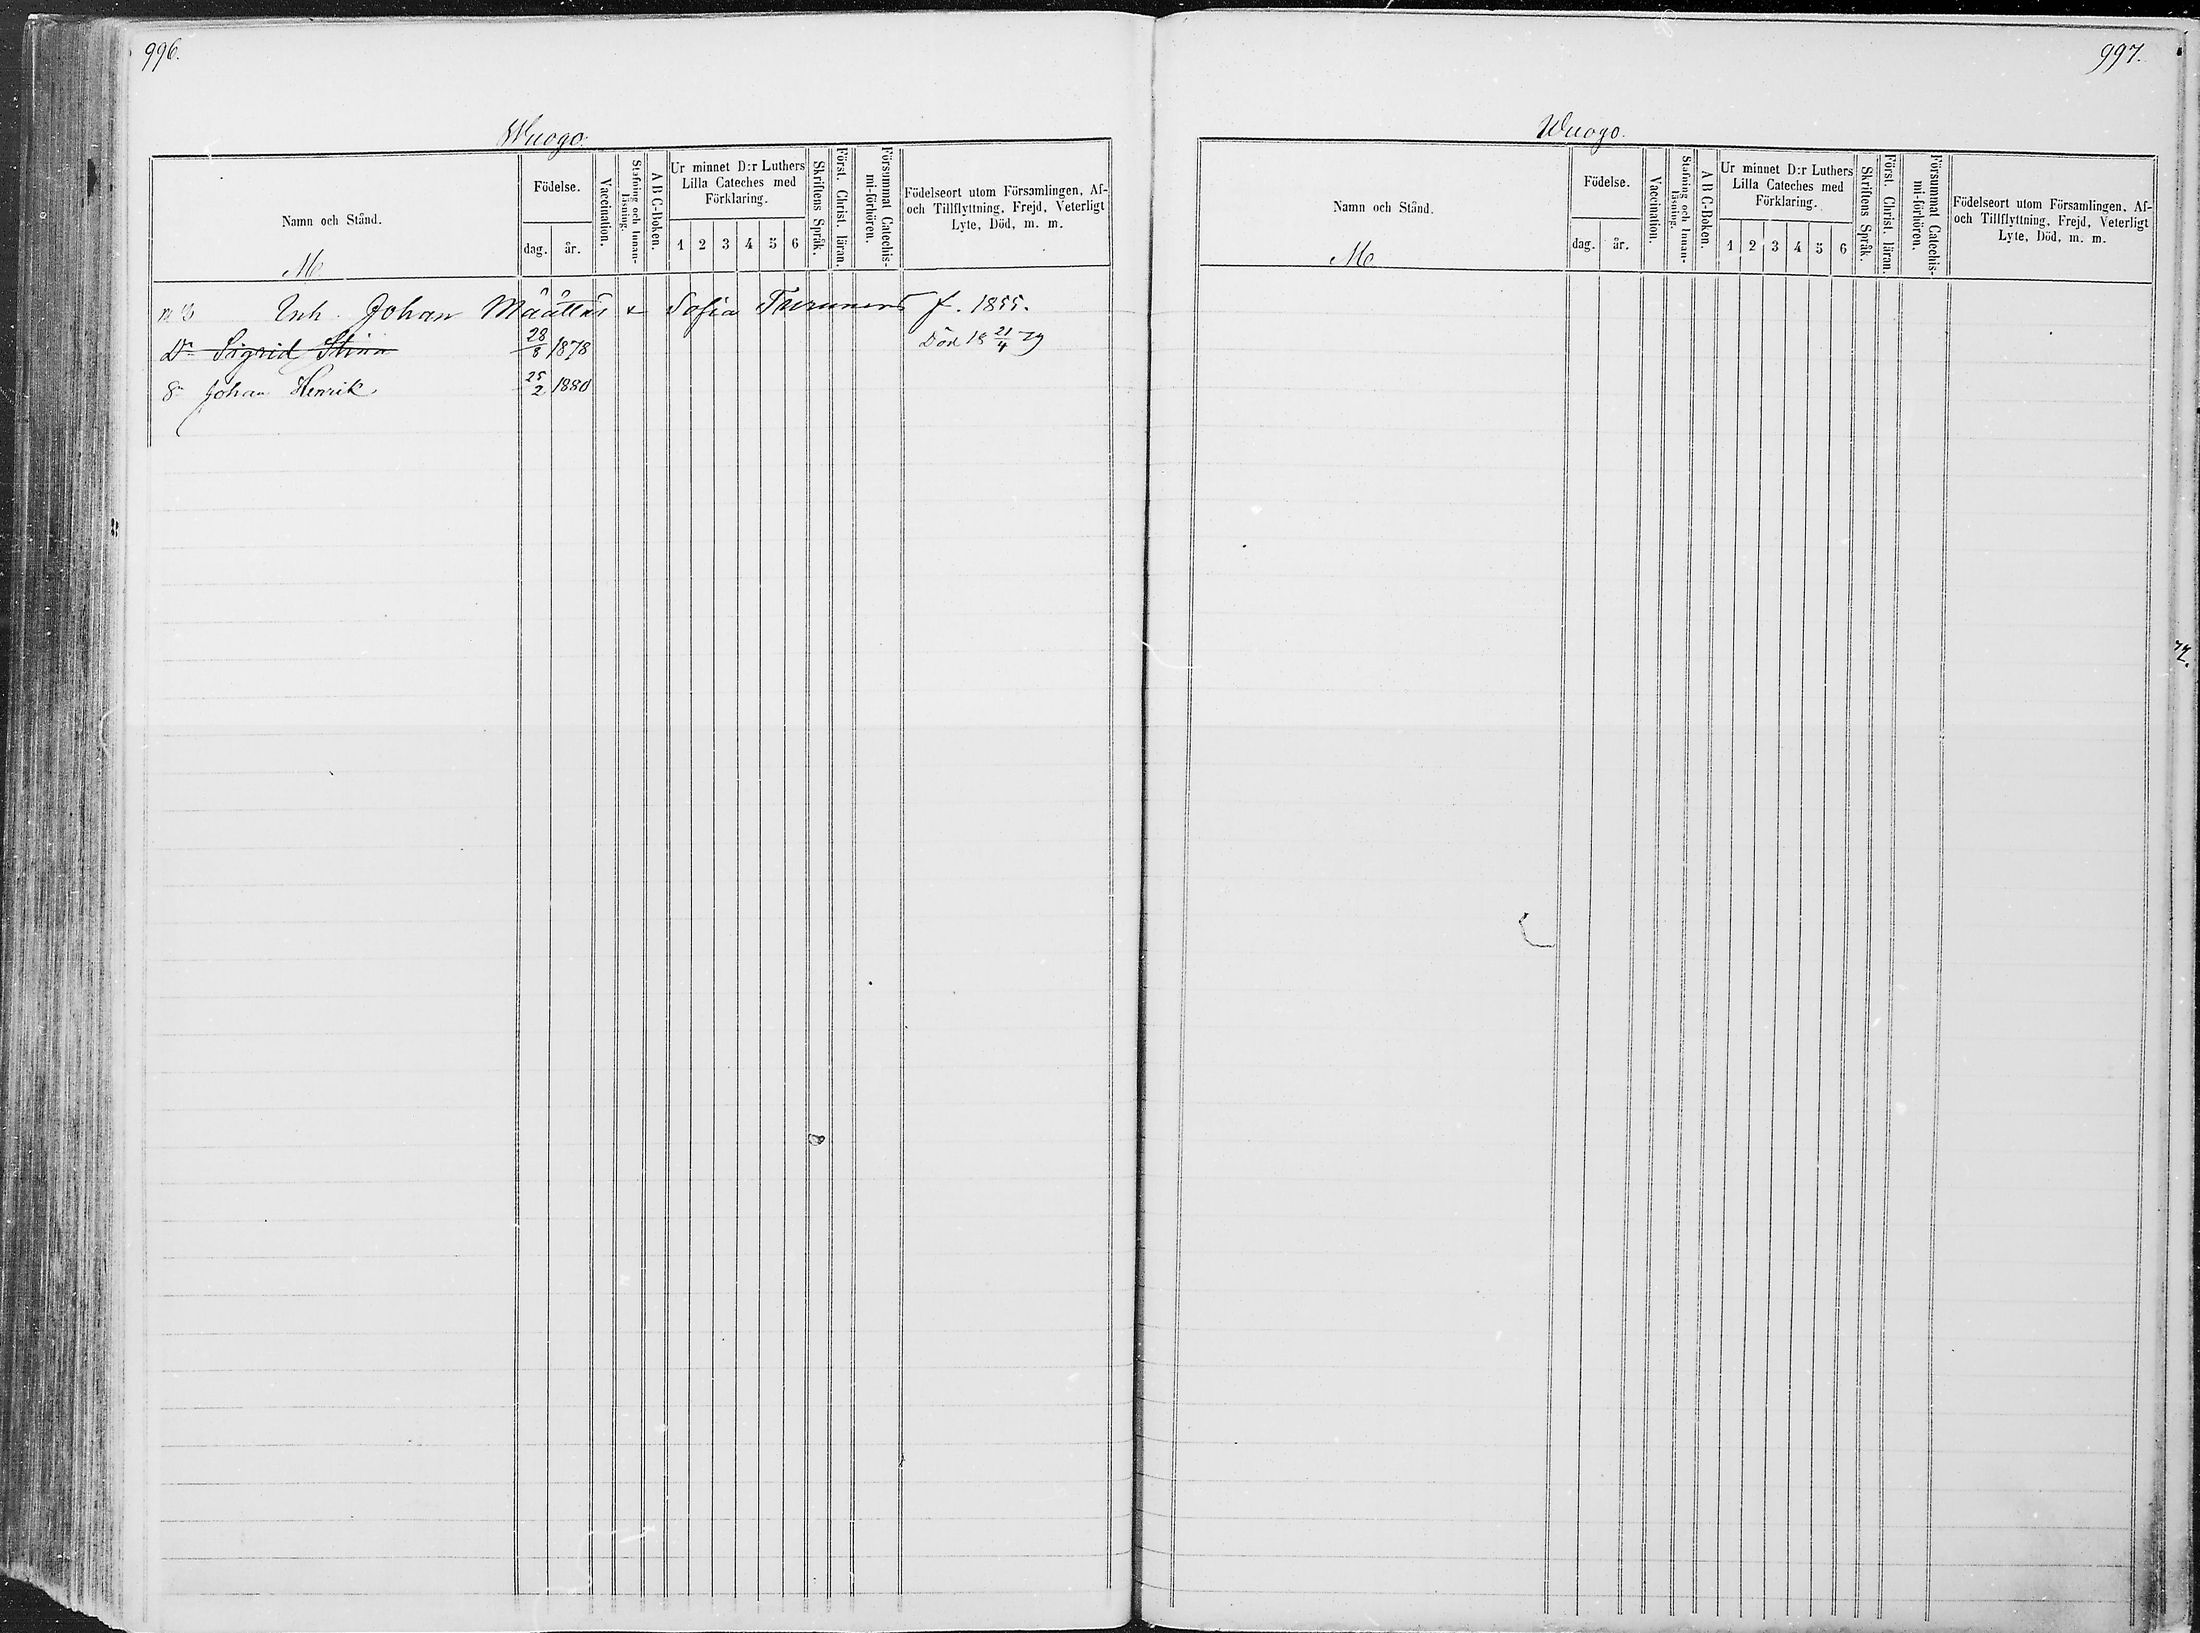 996.
Wuogo.
Namn och Stånd.
M
Födelse.
dag. år.
Vaccination.
Stafning och Innan-
läsning.
A B C-Boken.
Ur minnet D:r Luthers
Lilla Cateches med
Förklaring.
1 2 3 4 5 6
Skriftens Språk.
Först. Christ. läran.
Försummat Catechis-
mi-förhören.
Födelseort utom Församlingen, Af-
och Tillflyttning, Frejd, Veterligt
Lyte, Död, m. m.
Inh. Johan Määttäs & Sofia Turunens f. 1855.
Dr Sigrid Stina 28/8 1878 Död 18 21/4 79
Sn Johan Henrik 25/2 1880
997.
Wuogo.
Namn och Stånd.
M
Födelse.
dag. år.
Vaccination.
Stafning och Innan-
läsning.
A B C-Boken.
Ur minnet D:r Luthers
Lilla Cateches med
Förklaring.
1 2 3 4 5 6
Skriftens Språk.
Först. Christ. läran.
Försummat Catechis-
mi-förhören.
Födelseort utom Församlingen, Af-
och Tillflyttning, Frejd, Veterligt
Lyte, Död, m. m.